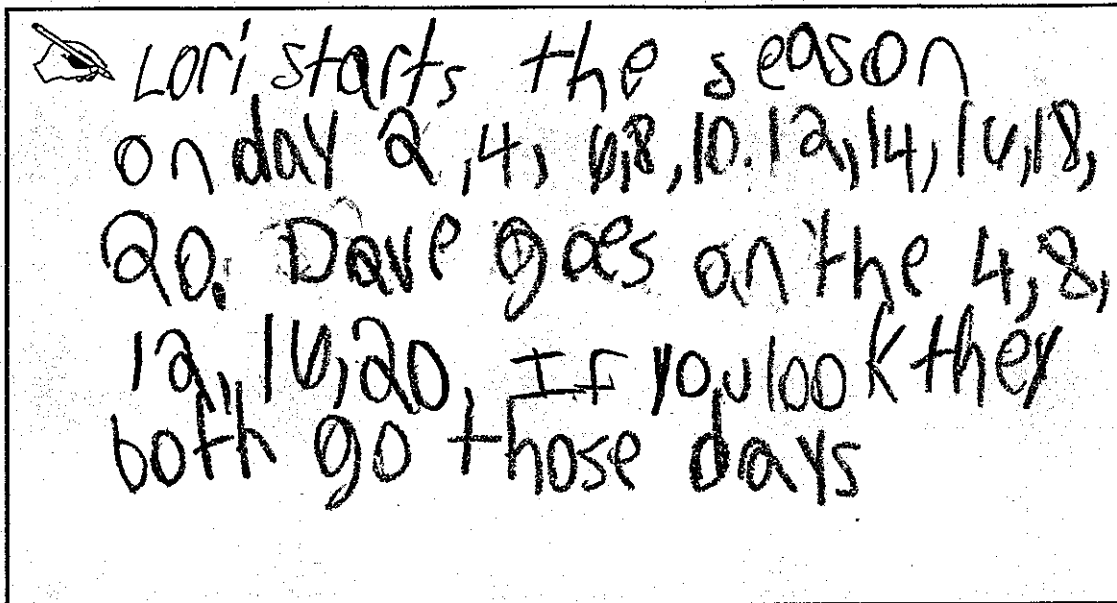 Lori starts the season
on day 2,4, 6,8,10.12,14,16,18,
20. Dave goes on the 4,8,
12,16,20, If you look they
both go those days